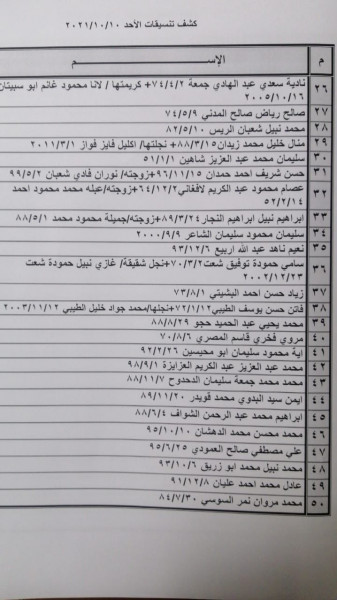 كشف تنسيقات الأحد ٢٠٢١/١٠/١٠
م الإســــــــم
٢٦ نادية سعدي عبد الهادي جمعة ٧٤/٤/٢+ كريمتها / لانا محمود غانم ابو سبيتان
٢٠٠٥/١٠/١٦
٢٧ صالح رياض صالح المدني ٧٤/٥/٩
٢٨ محمد نبيل شعبان الريس ٨٢/٥/١٠
٢٩ منال خليل محمد زيدان٨٨/٣/١٥+ نجلتها/ اكليل فايز فواز ٢٠١١/٣/١
٣٠ سليمان محمد عبد العزيز شاهين ٥١/١/١
٣١ حسن شريف احمد حمدان ٩٦/١١/١٥+زوجته/ نوران فادي شعبان ٩٩/٥/٢
٣٢ عصام محمود عبد الكريم لافغاني٦٤/١٢/٢+زوجته/عبله محمد محمود احمد
٥٢/٢/١٤
٣٣ ابراهيم نبيل ابراهيم النجار ٨٩/٣/٢٤+زوجته/جميلة محمود محمد ٨٨/٥/١
٣٤ سليمان محمود سليمان الشاعر ٢٠٠٠/٩/٩
٣٥ نعيم ناهد عبد الله اربيع ٩٣/١٢/٦
٣٦ سامي حمودة توفيق شعت٧٠/٣/٢+نجل شقيقة/ غازي نبيل حمودة شعت
٢٠٠٢/١٢/٢٣
٣٧ زياد حسن احمد البشيتي ٧٣/٨/١
٣٨ فاتن حسن يوسف الطيبي٧٢/١/١٢+نجلها/محمد جواد خليل الطيبي ٢٠٠٣/١١/١٢
٣٩ محمد يحيى عبد الحميد حجو ٨٨/٨/٢٩
٤٠ مروي فخري قاسم المصري ٧٠/٨/٦
٤١ اية محمود سليمان ابو محيسين ٩٢/٢/٢٦
٤٢ محمد عبد العزيز عبد الكريم العزايزة ٩٨/٩/١
٤٣ محمد محمد جمعة سليمان الدحدوح ٨٨/١١/٧
٤٤ ايمن سيد البدوي محمد قويدر ٨٩/١١/٢٠
٤٥ ابراهيم محمد عبد الرحمن الشواف ٨٨/٦/٤
٤٦ محمد محسن محمد الدهشان ٩٥/١٠/١٠
٤٧ علي مصطفي صالح العمودي ٩٥/٦/٢٥
٤٨ محمد نبيل محمد ابو زريق ٩٣/١٠/٦
٤٩ عادل محمد احمد عليان ٩١/١٢/٨
٥٠ محمد مروان نمر السوسي ٨٤/٧/٣٠